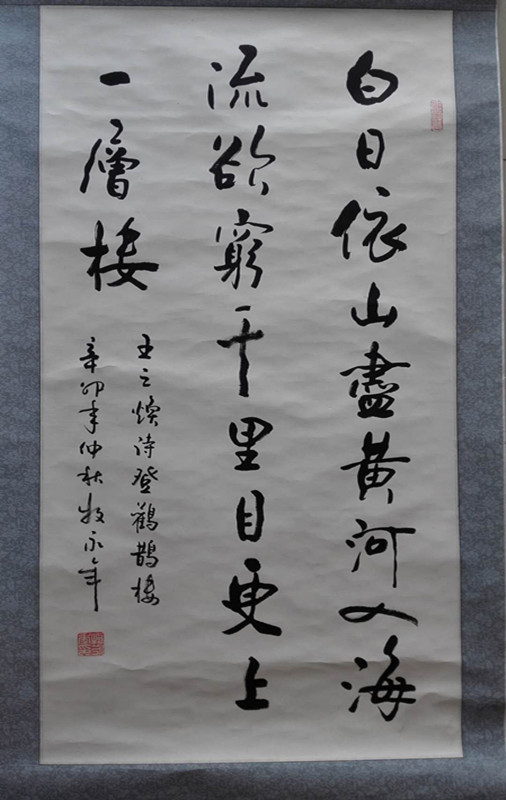 白日依山盡黄河入海
流欲窮千里目更上
一層楼
王之焕诗登鸛鵲楼
辛卯年仲秋牧永年